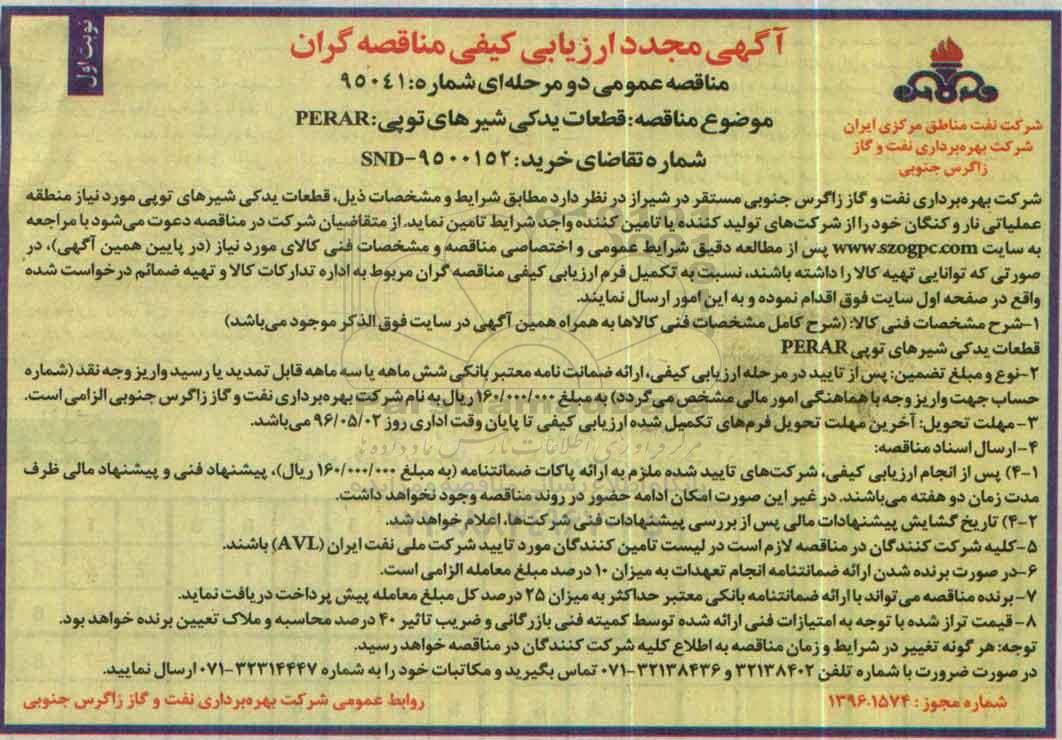 نوبت اول
آگهی مجدد ارزیابی کیفی مناقصه گران
مناقصه عمومی دو مرحله‌ای شماره: ۹۵۰۴۱
موضوع مناقصه: قطعات یدکی شیرهای توپی: PERAR
شماره تقاضای خرید: SND-۹۵۰۰۱۵۲
شرکت نفت مناطق مرکزی ایران
شرکت بهره‌برداری نفت و گاز
زاگرس جنوبی
شرکت بهره‌برداری نفت و گاز زاگرس جنوبی مستقر در شیراز در نظر دارد مطابق شرایط و مشخصات ذیل، قطعات یدکی شیرهای توپی مورد نیاز منطقه
عملیاتی نار و کنگان خود را از شرکت‌های تولید کننده یا تامین کننده واجد شرایط تامین نماید. از متقاضیان شرکت در مناقصه دعوت می‌شود با مراجعه
به سایت www.szogpc.com پس از مطالعه دقیق شرایط عمومی و اختصاصی مناقصه و مشخصات فنی کالای مورد نیاز (در پایین همین آگهی)، در
صورتی که توانایی تهیه کالا را داشته باشند، نسبت به تکمیل فرم ارزیابی کیفی مناقصه گران مربوط به اداره تدارکات کالا و تهیه ضمائم درخواست شده
واقع در صفحه اول سایت فوق اقدام نموده و به این امور ارسال نمایند.
۱-شرح مشخصات فنی کالا: (شرح کامل مشخصات فنی کالاها به همراه همین آگهی در سایت فوق الذکر موجود می‌باشد)
قطعات یدکی شیرهای توپی PERAR
۲-نوع و مبلغ تضمین: پس از تایید در مرحله ارزیابی کیفی، ارائه ضمانت نامه معتبر بانکی شش ماهه یا سه ماهه قابل تمدید یا رسید واریز وجه نقد (شماره
حساب جهت واریز وجه با هماهنگی امور مالی مشخص می‌گردد) به مبلغ ۱۶۰/۰۰۰/۰۰۰ ریال به نام شرکت بهره‌برداری نفت و گاز زاگرس جنوبی الزامی است.
۳-مهلت تحویل: آخرین مهلت تحویل فرم‌های تکمیل شده ارزیابی کیفی تا پایان وقت اداری روز ۹۶/۰۵/۰۲ می‌باشد.
۴-ارسال اسناد مناقصه:
۴-۱) پس از انجام ارزیابی کیفی، شرکت‌های تایید شده ملزم به ارائه پاکات ضمانتنامه (به مبلغ ۱۶۰/۰۰۰/۰۰۰ ریال)، پیشنهاد فنی و پیشنهاد مالی ظرف
مدت زمان دو هفته می‌باشند. در غیر این صورت امکان ادامه حضور در روند مناقصه وجود نخواهد داشت.
۴-۲) تاریخ گشایش پیشنهادات مالی پس از بررسی پیشنهادات فنی شرکت‌ها، اعلام خواهد شد.
۵-کلیه شرکت کنندگان در مناقصه لازم است در لیست تامین کنندگان مورد تایید شرکت ملی نفت ایران (AVL) باشند.
۶-در صورت برنده شدن ارائه ضمانتنامه انجام تعهدات به میزان ۱۰ درصد مبلغ معامله الزامی است.
۷-برنده مناقصه می‌تواند با ارائه ضمانتنامه بانکی معتبر حداکثر به میزان ۲۵ درصد کل مبلغ معامله پیش پرداخت دریافت نماید.
۸-قیمت تراز شده با توجه به امتیازات فنی ارائه شده توسط کمیته فنی بازرگانی و ضریب تاثیر ۴۰ درصد محاسبه و ملاک تعیین برنده خواهد بود.
توجه: هر گونه تغییر در شرایط و زمان مناقصه به اطلاع کلیه شرکت کنندگان در مناقصه خواهد رسید.
در صورت ضرورت با شماره تلفن ۳۲۱۳۸۴۰۲ و ۳۲۱۳۸۴۳۶-۰۷۱ تماس بگیرید و مکاتبات خود را به شماره ۳۲۳۱۴۴۴۷-۰۷۱ ارسال نمایید.
شماره مجوز: ۱۳۹۶.۱۵۷۴
روابط عمومی شرکت بهره‌برداری نفت و گاز زاگرس جنوبی